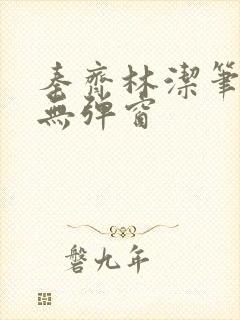 秦齊林潔筆
無弹窗
磐九年